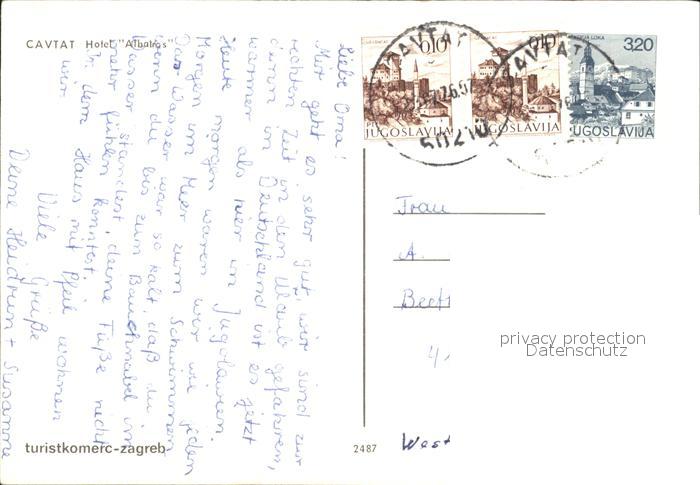 CAVTAT Hotel "Albatros"
Liebe Oma!
Mir geht es sehr gut, wir sind zur
rechten Zeit in den Urlaub gefahren,
denn in Deutschland ist es jetzt
wärmer als hier in Jugoslawien.
Heute morgen waren wir wie jeden
Morgen im Meer zum Schwimmen
Das Wasser war so kalt, daß du
wenn du bis zum Bauchnabel im
Wasser standest, deine Füße nicht
mehr fühlen konntest.
In dem Haus mit Pfeil wohnen
wir.
Viele Grüße
Deine Heidrun + Susanne
turistkomerc-zagreb
2487
CAVTAT
0,10
0,10
JUGOSLAVIJA
JUGOSLAVIJA
50210
CAVTAT
ŠKOFJA LOKA
3,20
JUGOSLAVIJA
Frau
A.
privacy protection
Datenschutz
4
West